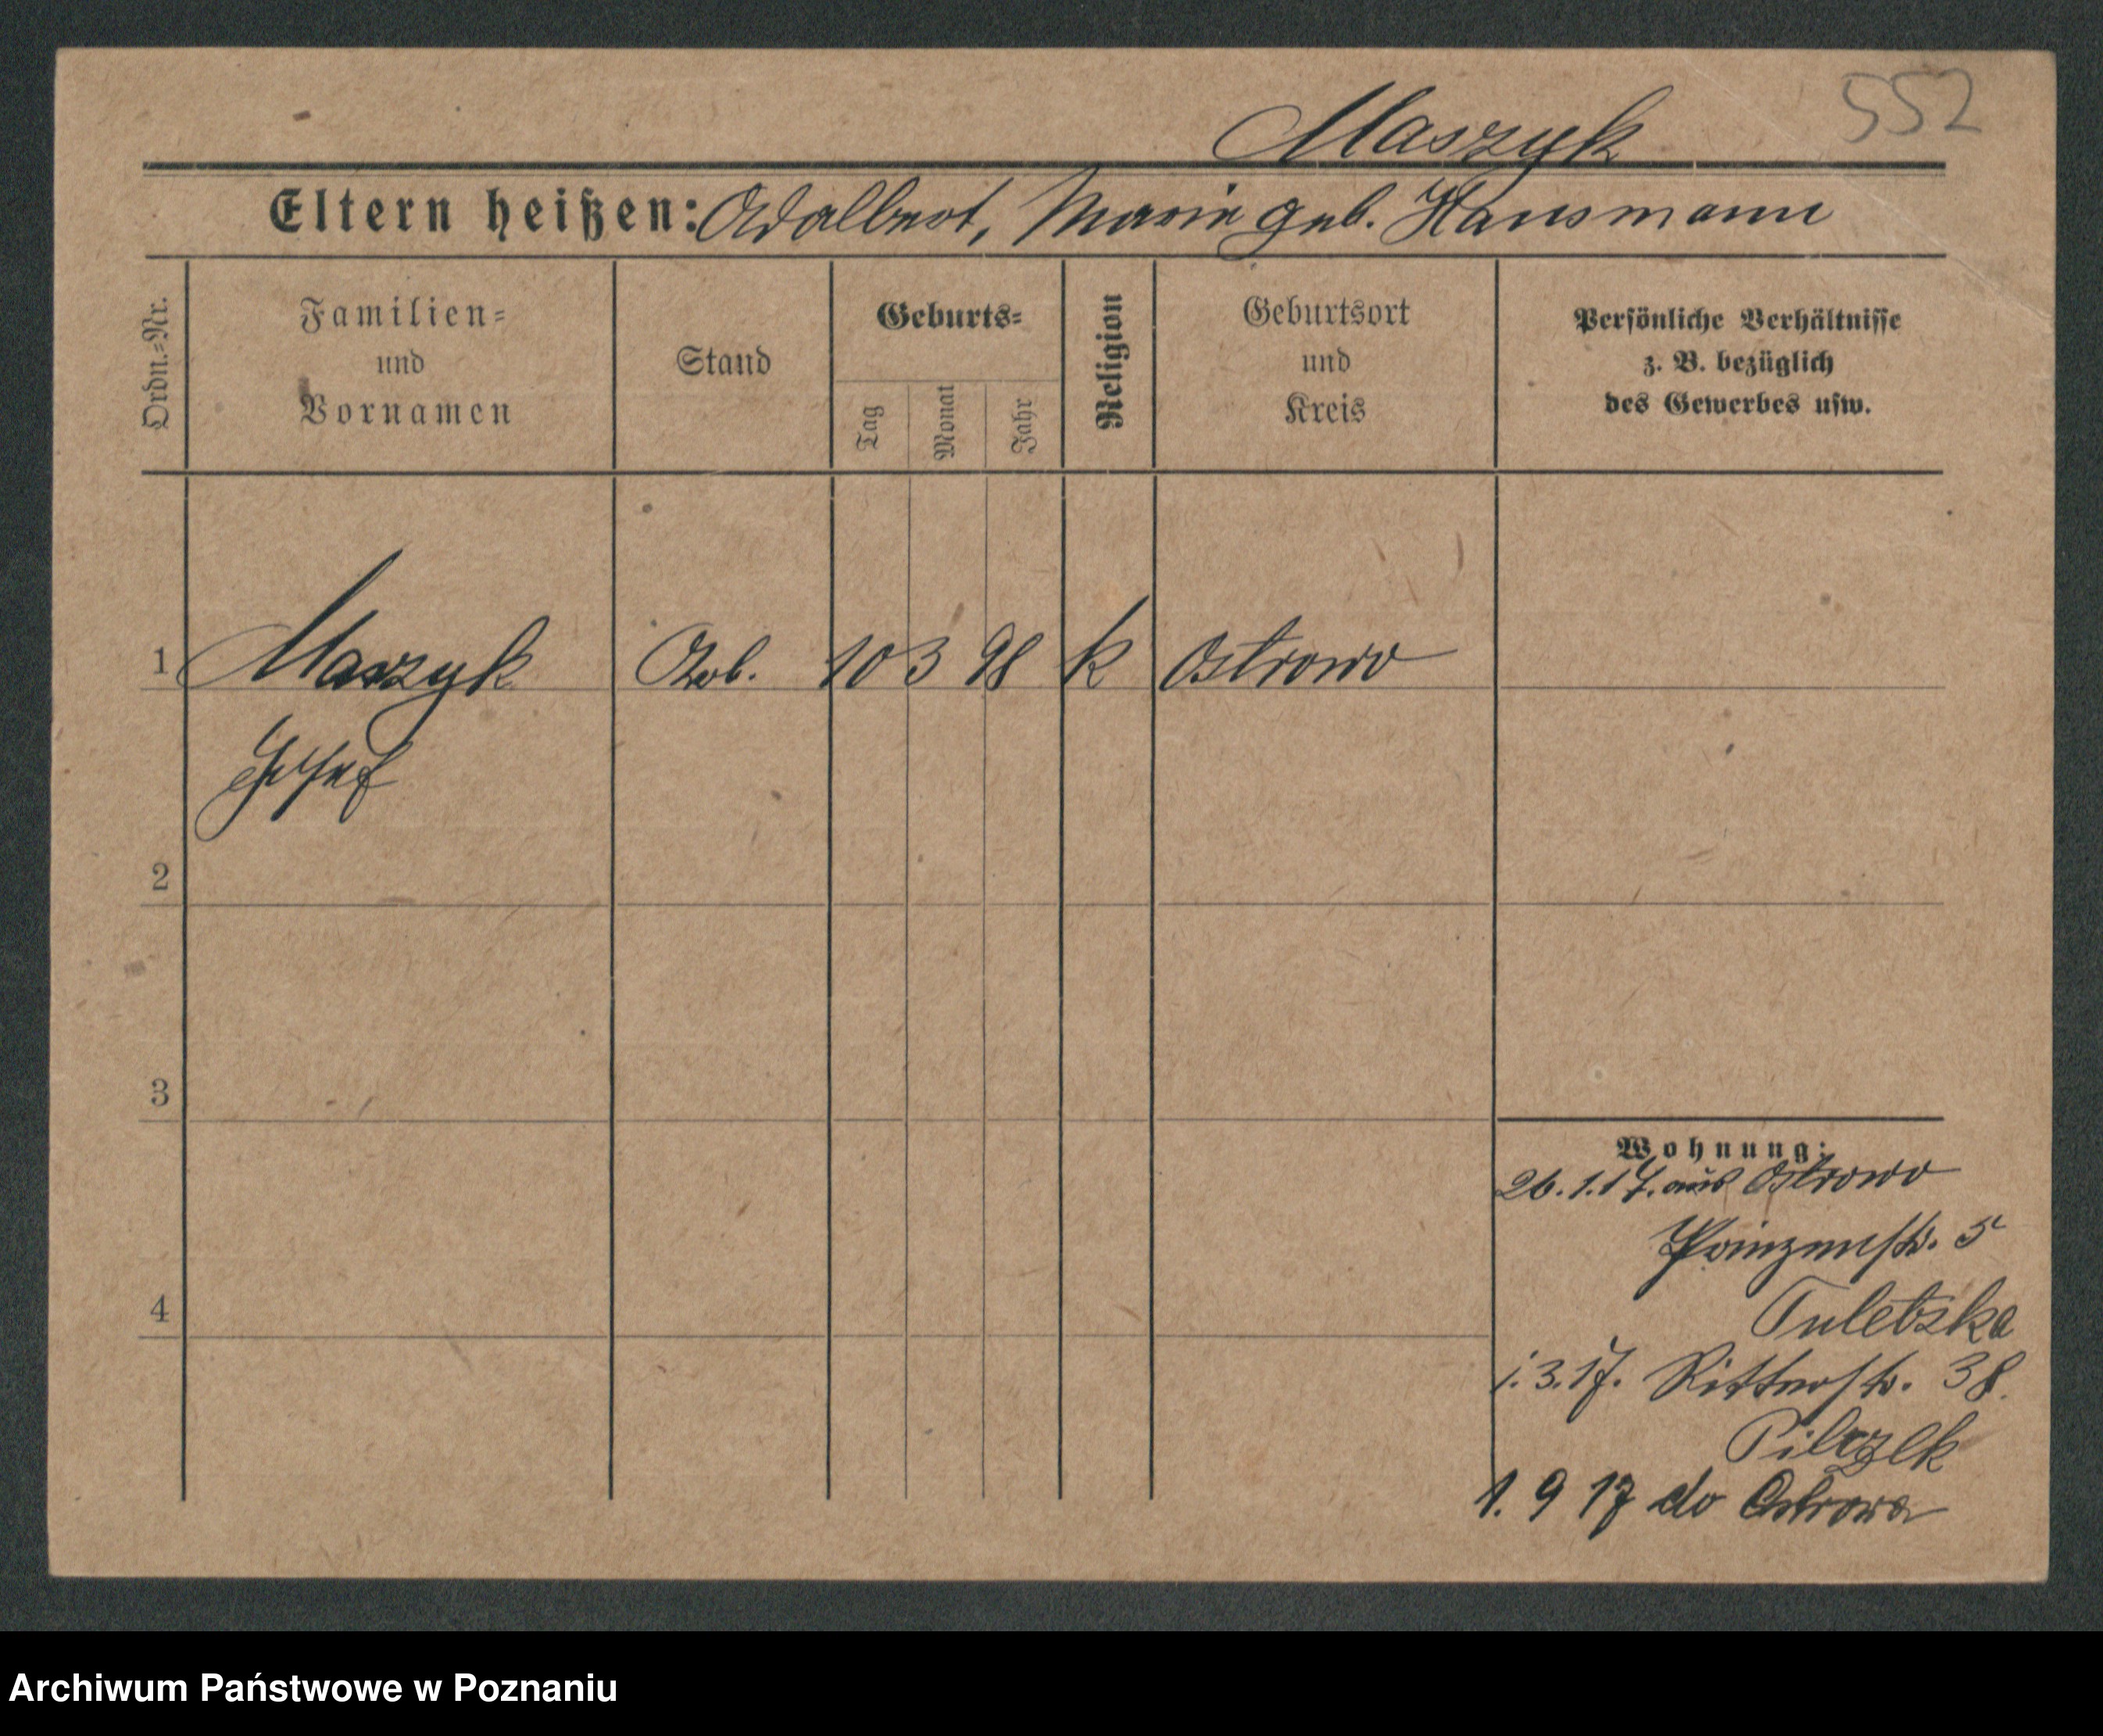 552
Maszyk
Eltern heißen: Adalbert, Marie geb. Hausmann
Ordn.-Nr.
Familien-
und
Vornamen
Stand
Geburts-
Tag
Monat
Jahr
Religion
Geburtsort
und
Kreis
Persönliche Verhältnisse
z. B. bezüglich
des Gewerbes usw.
1 Maszyk Arb. 10 3 98 k Ostrowo
Josef
2
3
4
Wohnung:
26.1.17. aus Ostrowo
Prinzenstr. 5
1.3.17. Ritterstr. 38.
1. 9 17 do Ostrowa
Archiwum Państwowe w Poznaniu